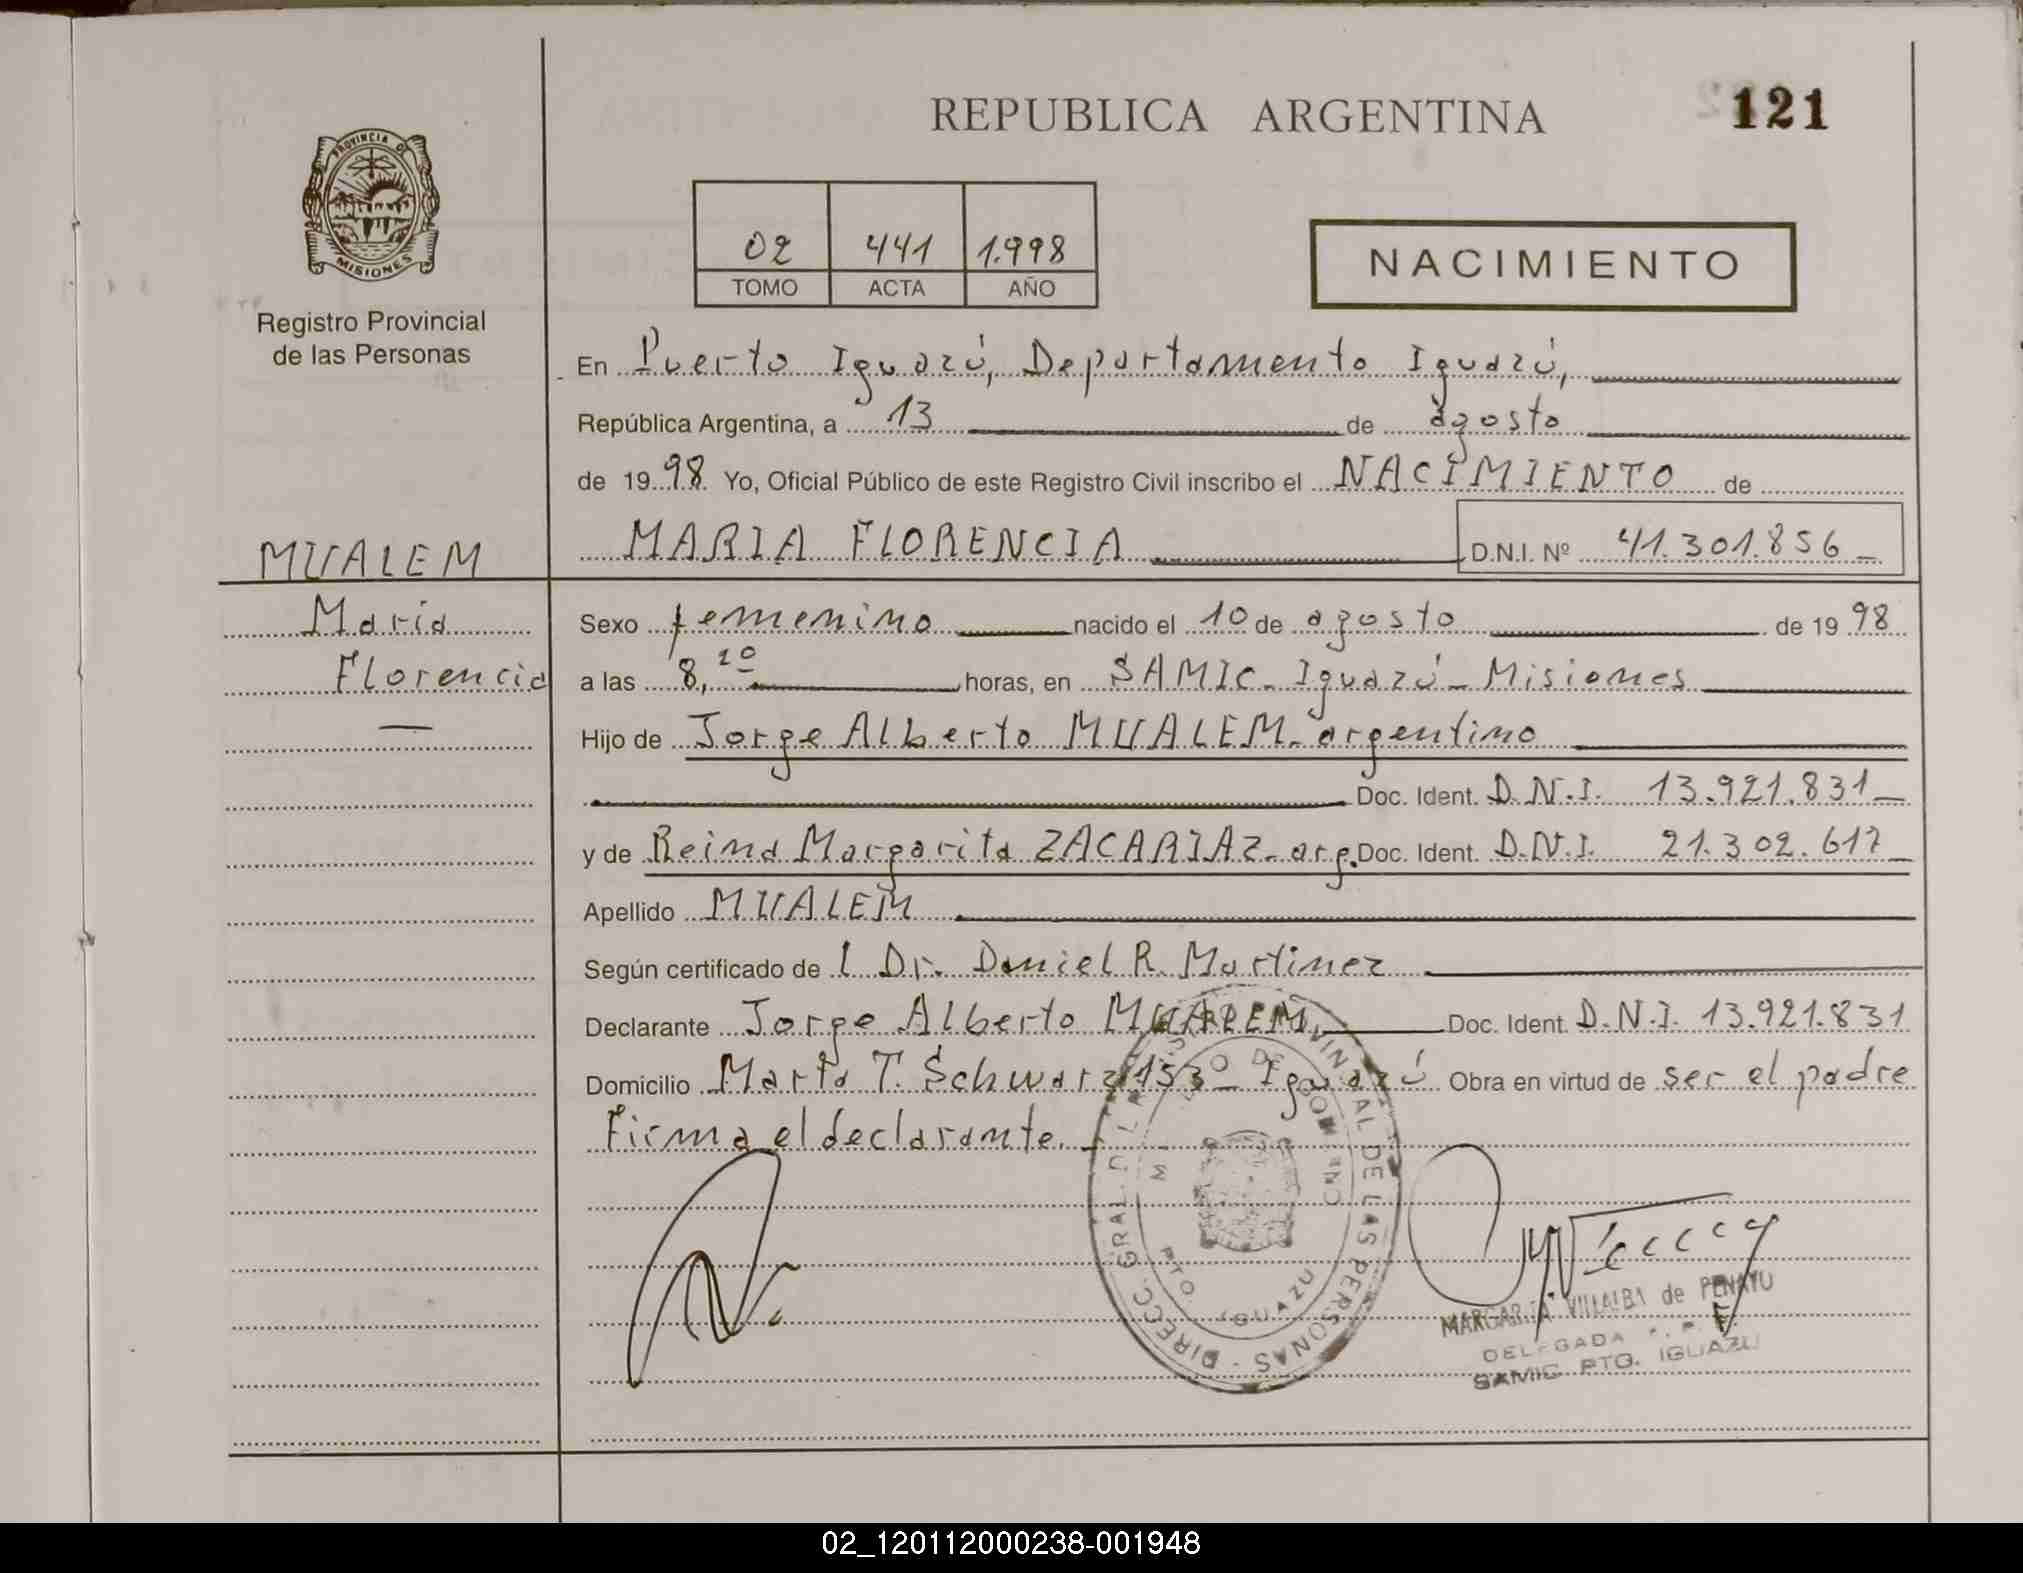 REPUBLICA ARGENTINA
121
PROVINCIA DE
MISIONES
Registro Provincial
de las Personas
02 441 1.998
TOMO ACTA AÑO
NACIMIENTO
En Puerto Iguazú, Departamento Iguazú,
República Argentina, a 13 de agosto
de 1998. Yo, Oficial Público de este Registro Civil inscribo el NACIMIENTO de
MUALEM
MARIA FLORENCIA D.N.I. Nº 41.301.856
María
Florencia
Sexo femenino nacido el 10 de agosto de 1998
a las 8,20 horas, en SAMIC - Iguazú - Misiones
Hijo de Jorge Alberto MUALEM - argentino
Doc. Ident. D.N.I. 13.921.831
y de Reina Margarita ZACARIAZ - arg. Doc. Ident. D.N.I. 21.302.617
Apellido MUALEM
Según certificado de l Dr. Daniel R. Martinez
Declarante Jorge Alberto MUALEM, Doc. Ident. D.N.I. 13.921.831
Domicilio Marta T. Schwarz 153 - Iguazú Obra en virtud de ser el padre
Firma el declarante.
DIRECC. GRAL. PROVINCIAL DE LAS PERSONAS
PTO. IGUAZU
MARGARITA VILLALBA de PENAYO
DELEGADA
SAMIC PTO. IGUAZU
02_120112000238-001948